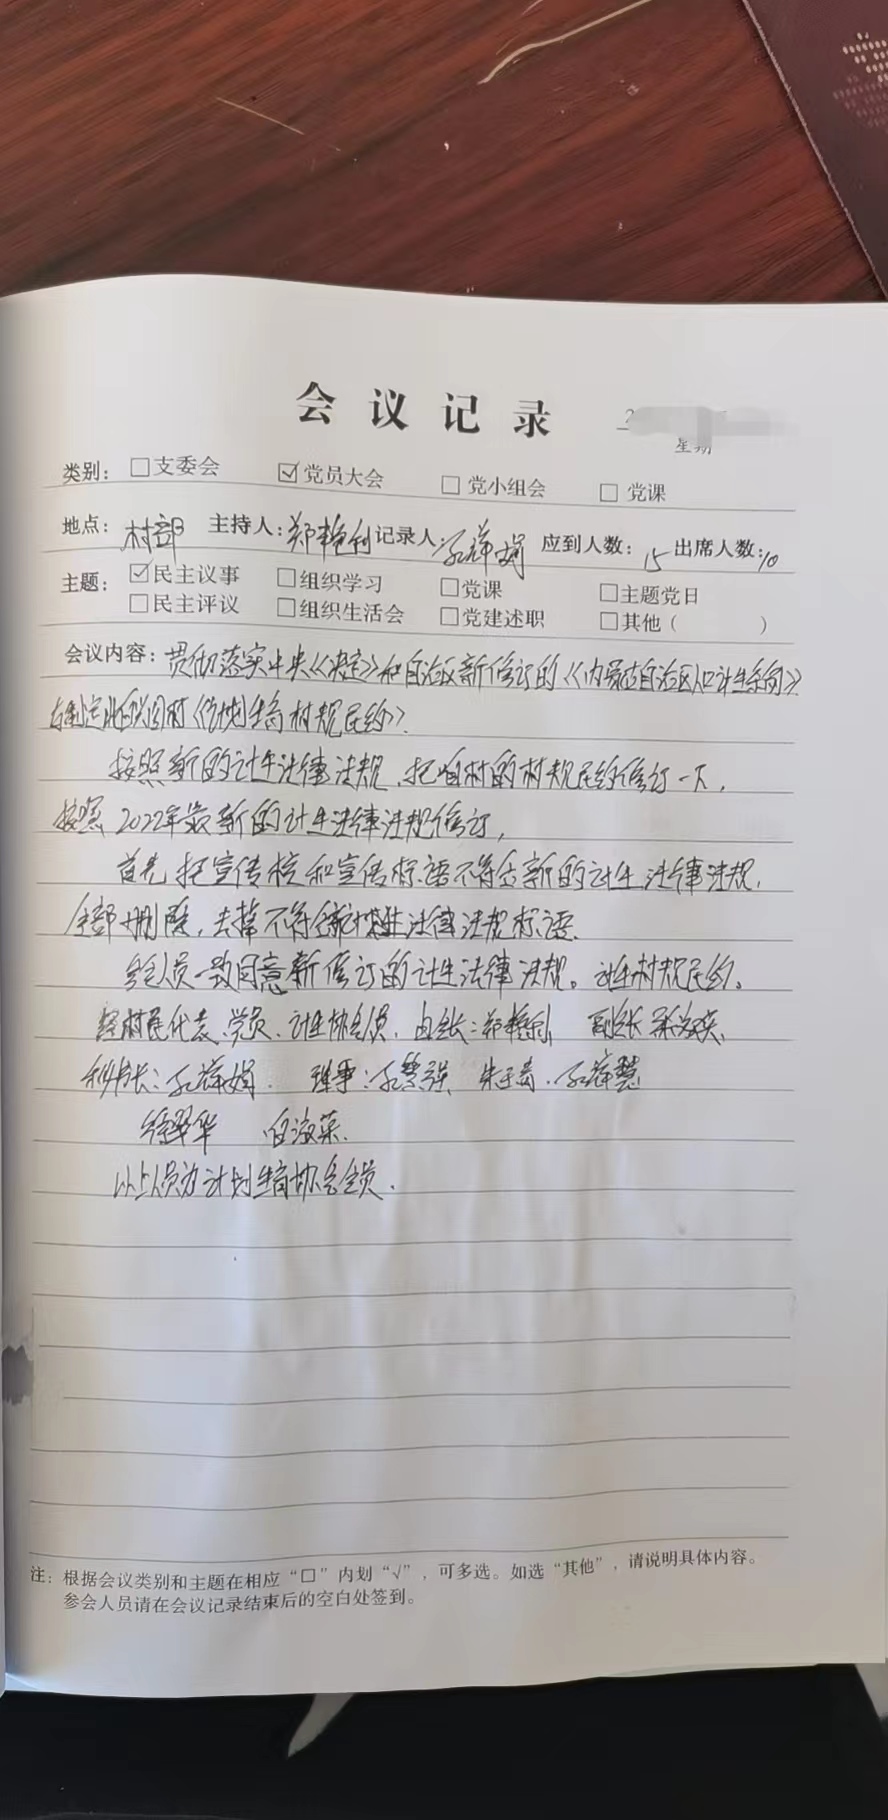 会议记录
星期
类别：□支委会 ☑党员大会 □党小组会 □党课
地点：村部 主持人：郑艳利 记录人：孔祥娟 应到人数：15 出席人数：10
主题：☑民主议事 □组织学习 □党课 □主题党日
□民主评议 □组织生活会 □党建述职 □其他（ ）
会议内容：贯彻落实中央《决定》和自治区新修订的《内蒙古自治区人口计生条例》
村《计划生育村规民约》.
按照新的计生法律法规，把咱村的村规民约修订一下，
按照2022年最新的计生法律法规修订，
首先把宣传栏和宣传标语不符合新的计生法律法规，
全部删除，去掉不符合新计生法律法规标语.
会员一致同意新修订的计生法律法规。计生村规民约。
经村民代表、党员、计生协会员，由会长：郑艳利 副会长
秘书长：孔祥娟. 理事：孔繁强 朱 孔祥慧
翠华 白海菜.
以上人员为计划生育协会会员.
注：根据会议类别和主题在相应“□”内划“√”，可多选。如选“其他”，请说明具体内容。
参会人员请在会议记录结束后的空白处签到。